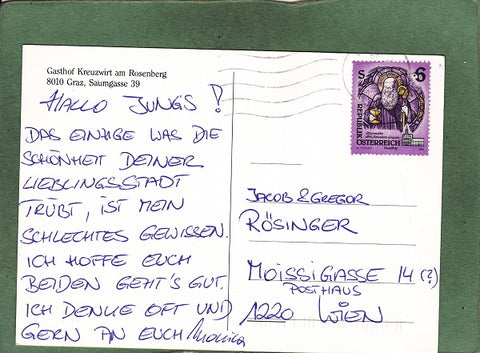 Gasthof Kreuzwirt am Rosenberg
8010 Graz, Saumgasse 39
HALLO JUNGS!
DAS EINZIGE WAS DIE
SCHÖNHEIT DEINER
LIEBLINGSSTADT
TRÜBT, IST MEIN
SCHLECHTES GEWISSEN.
ICH HOFFE EUCH
BEIDEN GEHT'S GUT.
ICH DENKE OFT UND
GERN AN EUCH Monika
S 6
REPUBLIK
ÖSTERREICH
JACOB & GREGOR
RÖSINGER
MOISSIGASSE 14 (?)
POSTHAUS
1220 WIEN